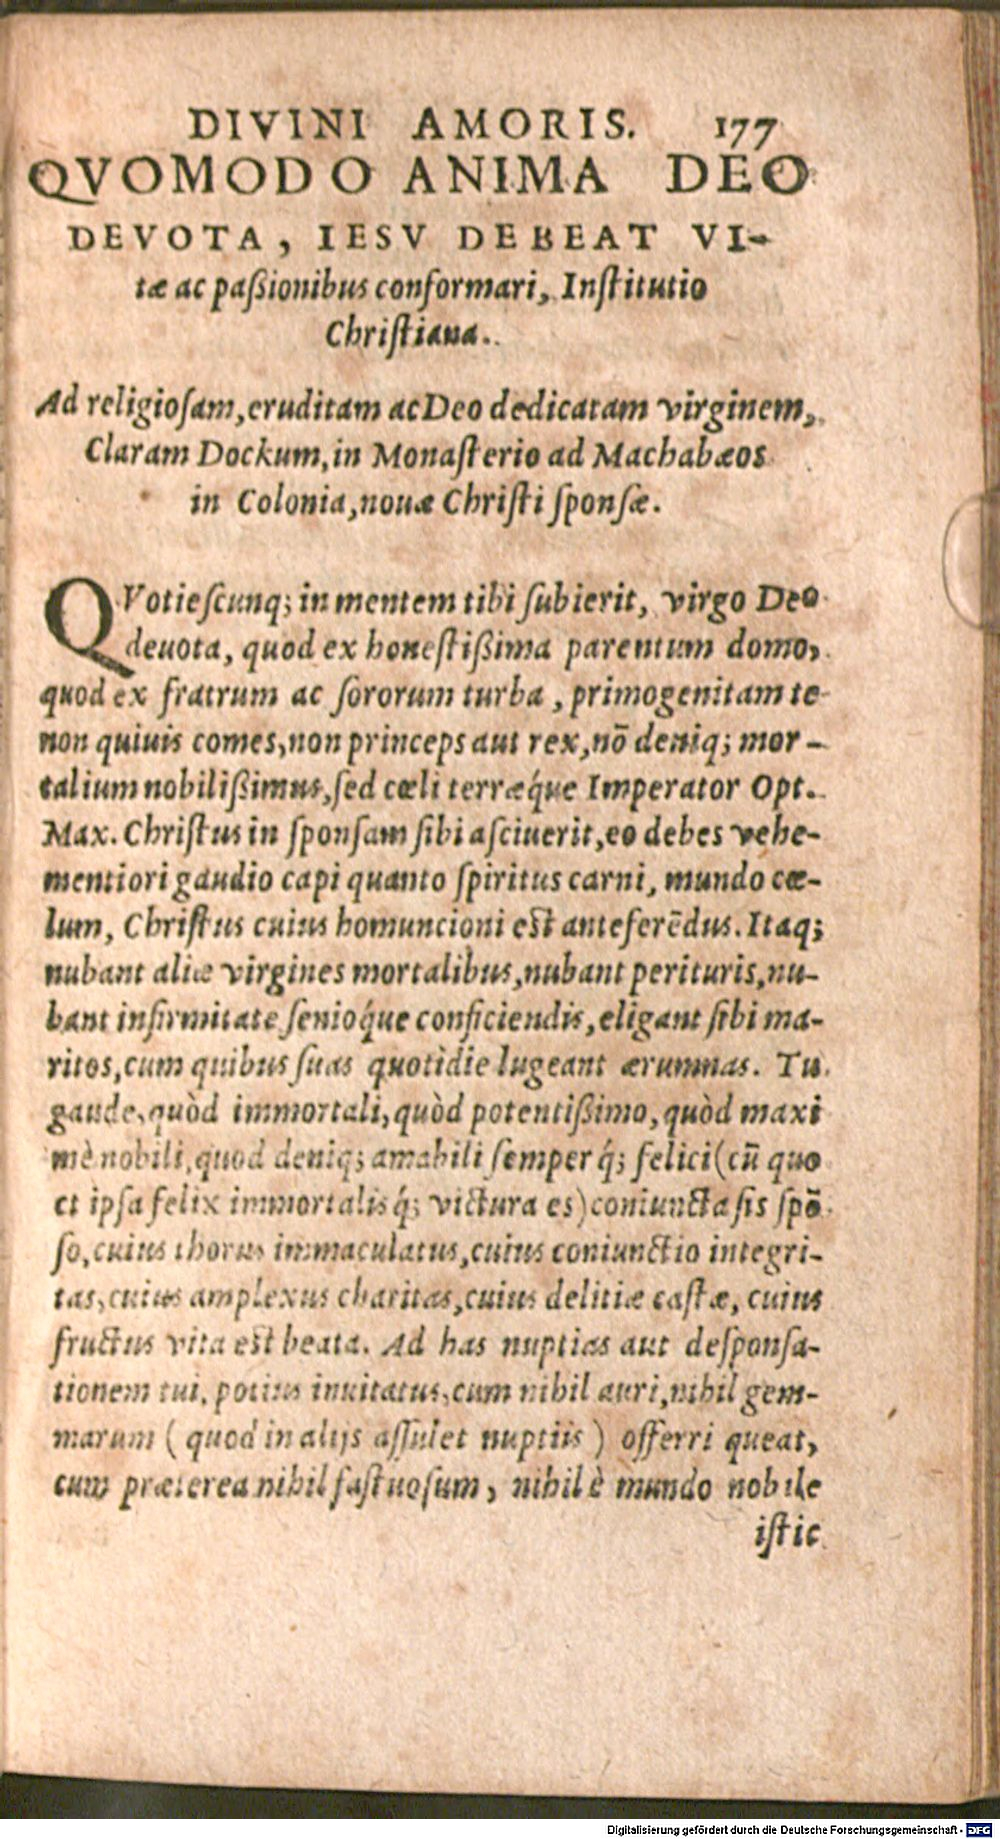 DIVINI AMORIS. 177
QVOMODO ANIMA DEO
DEVOTA, IESV DEBEAT VI-
tæ ac paßionibus conformari, Inſtitutio
Chriſtiana.
Ad religioſam, eruditam ac Deo dedicatam virginem,
Claram Dockum, in Monaſterio ad Machabæos
in Colonia, nouæ Chriſti ſponſæ.
QVotieſcunq; in mentem tibi ſubierit, virgo Deo
deuota, quod ex honeſtißima parentum domo,
quod ex fratrum ac ſororum turba, primogenitam te
non quiuis comes, non princeps aut rex, nō deniq; mor-
talium nobilißimus, ſed cœli terræq́ue Imperator Opt.
Max. Chriſtus in ſponſam ſibi aſciuerit, eo debes vehe-
mentiori gaudio capi quanto ſpiritus carni, mundo cœ-
lum, Chriſtus cuius homuncioni eſt anteferēdus. Itaq;
nubant aliæ virgines mortalibus, nubant perituris, nu-
bant infirmitate ſenioq́ue conficiendis, eligant ſibi ma-
ritos, cum quibus ſuas quotidie lugeant ærumnas. Tu
gaude, quòd immortali, quòd potentißimo, quòd maxi
mè nobili, quod deniq; amabili ſemper q́; felici (cū quo
et ipſa felix immortalis q́; victura es) coniuncta ſis ſpō-
ſo, cuius thorus immaculatus, cuius coniunctio integri-
tas, cuius amplexus charitas, cuius delitiæ caſtæ, cuius
fructus vita eſt beata. Ad has nuptias aut deſponſa-
tionem tui, potius inuitatus, cum nihil auri, nihil gem-
marum (quod in alijs aſſulet nuptiis) offerri queat,
cum præterea nihil faſtuoſum, nihil è mundo nobile
iſtic
Digitalisierung gefördert durch die Deutsche Forschungsgemeinschaft - DFG